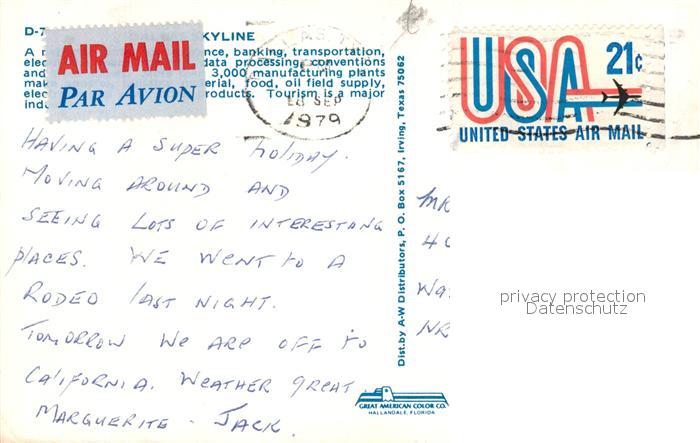 D-7
KYLINE
AIR MAIL
PAR AVION
A n nce, banking, transportation,
elec data processing, conventions
and 3,000 manufacturing plants
mak erial, food, oil field supply,
elec roducts. Tourism is a major
indu
SEP
1979
USA 21c
UNITED STATES AIR MAIL
HAVING A SUPER HOLIDAY.
MOVING AROUND AND
SEEING LOTS OF INTERESTING
PLACES. WE WENT TO A
RODEO LAST NIGHT.
TOMORROW WE ARE OFF TO
CALIFORNIA. WEATHER GREAT.
MARGUERITE - JACK.
Dist. by A-W Distributors, P. O. Box 5167, Irving, Texas 75062
GREAT AMERICAN COLOR CO.
HALLANDALE, FLORIDA
MR
4
WA
NR
privacy protection
Datenschutz